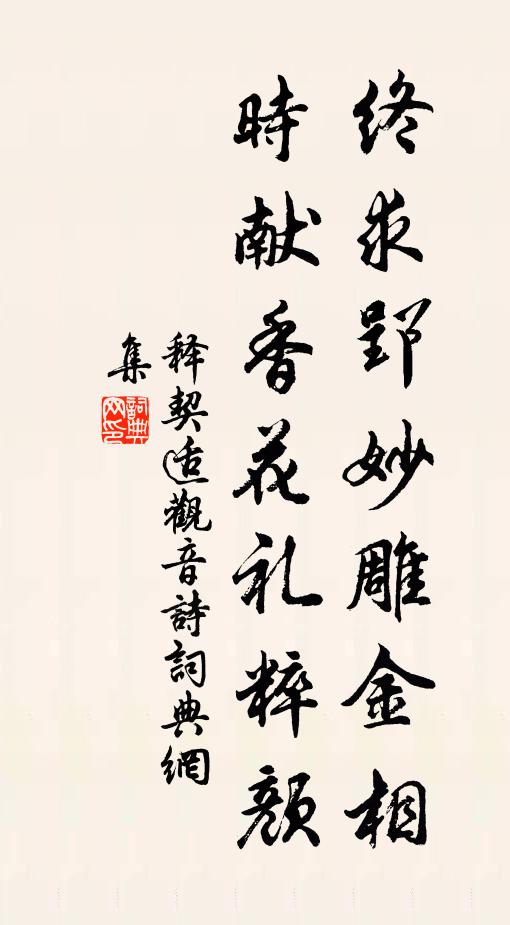 終求郢妙雕金相
時献香花礼粹顔
释契适觀音詩詞典網
集
詞典网印